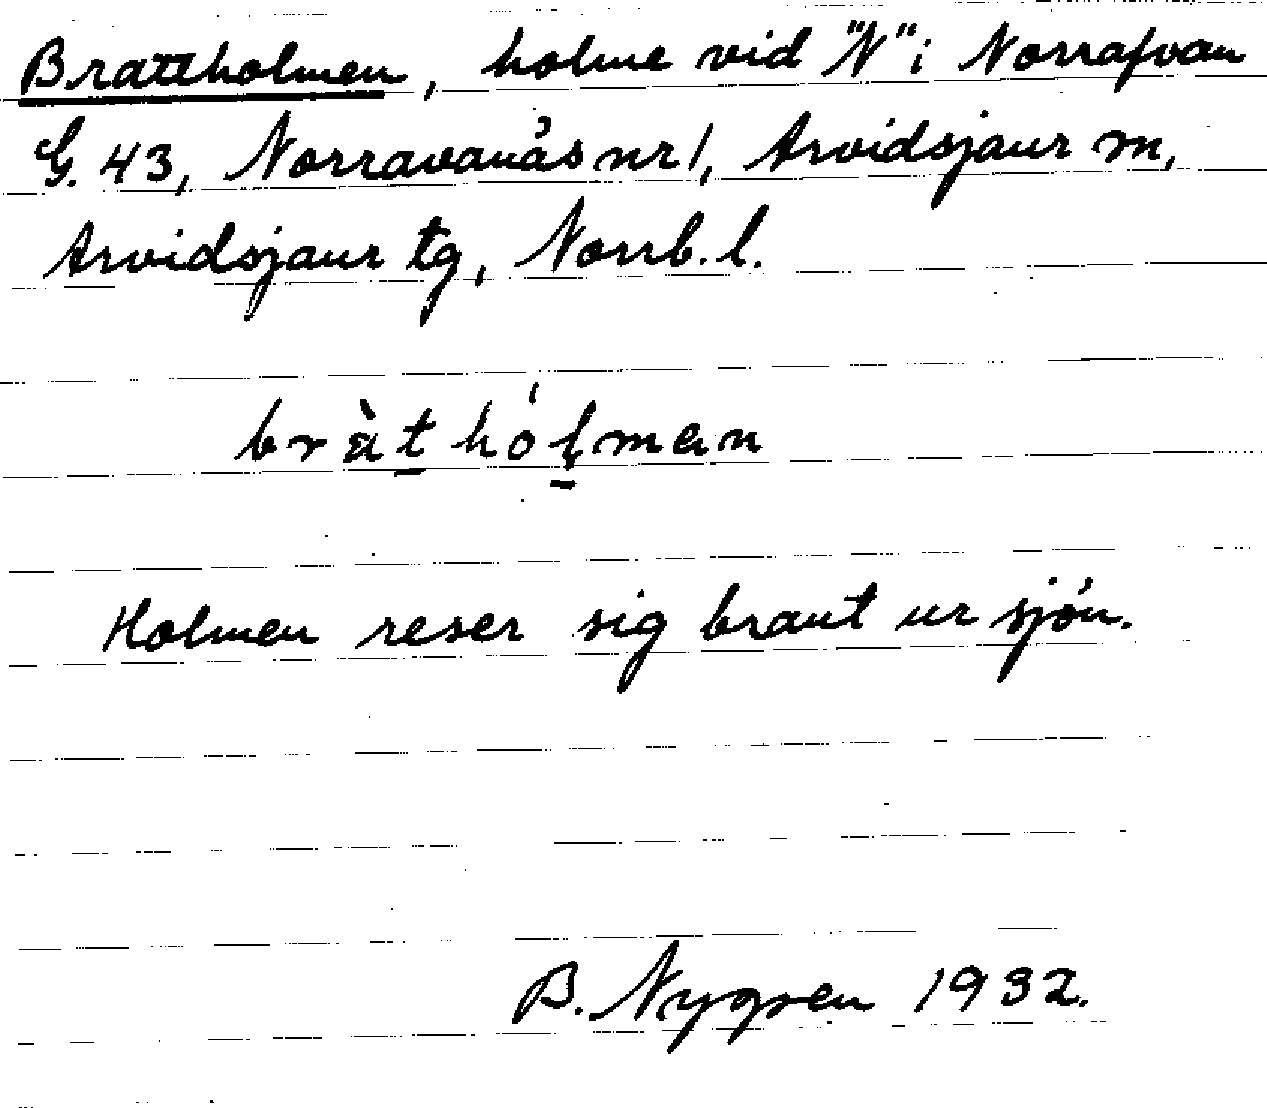 Brattholmen, holme vid "N" i Norrafvan
G. 43, Norravanås nr 1, Arvidsjaur sn,
Arvidsjaur tg, Norrb. l.
bràt hólmen
Holmen reser sig brant ur sjön.
B. Nygren 1932.